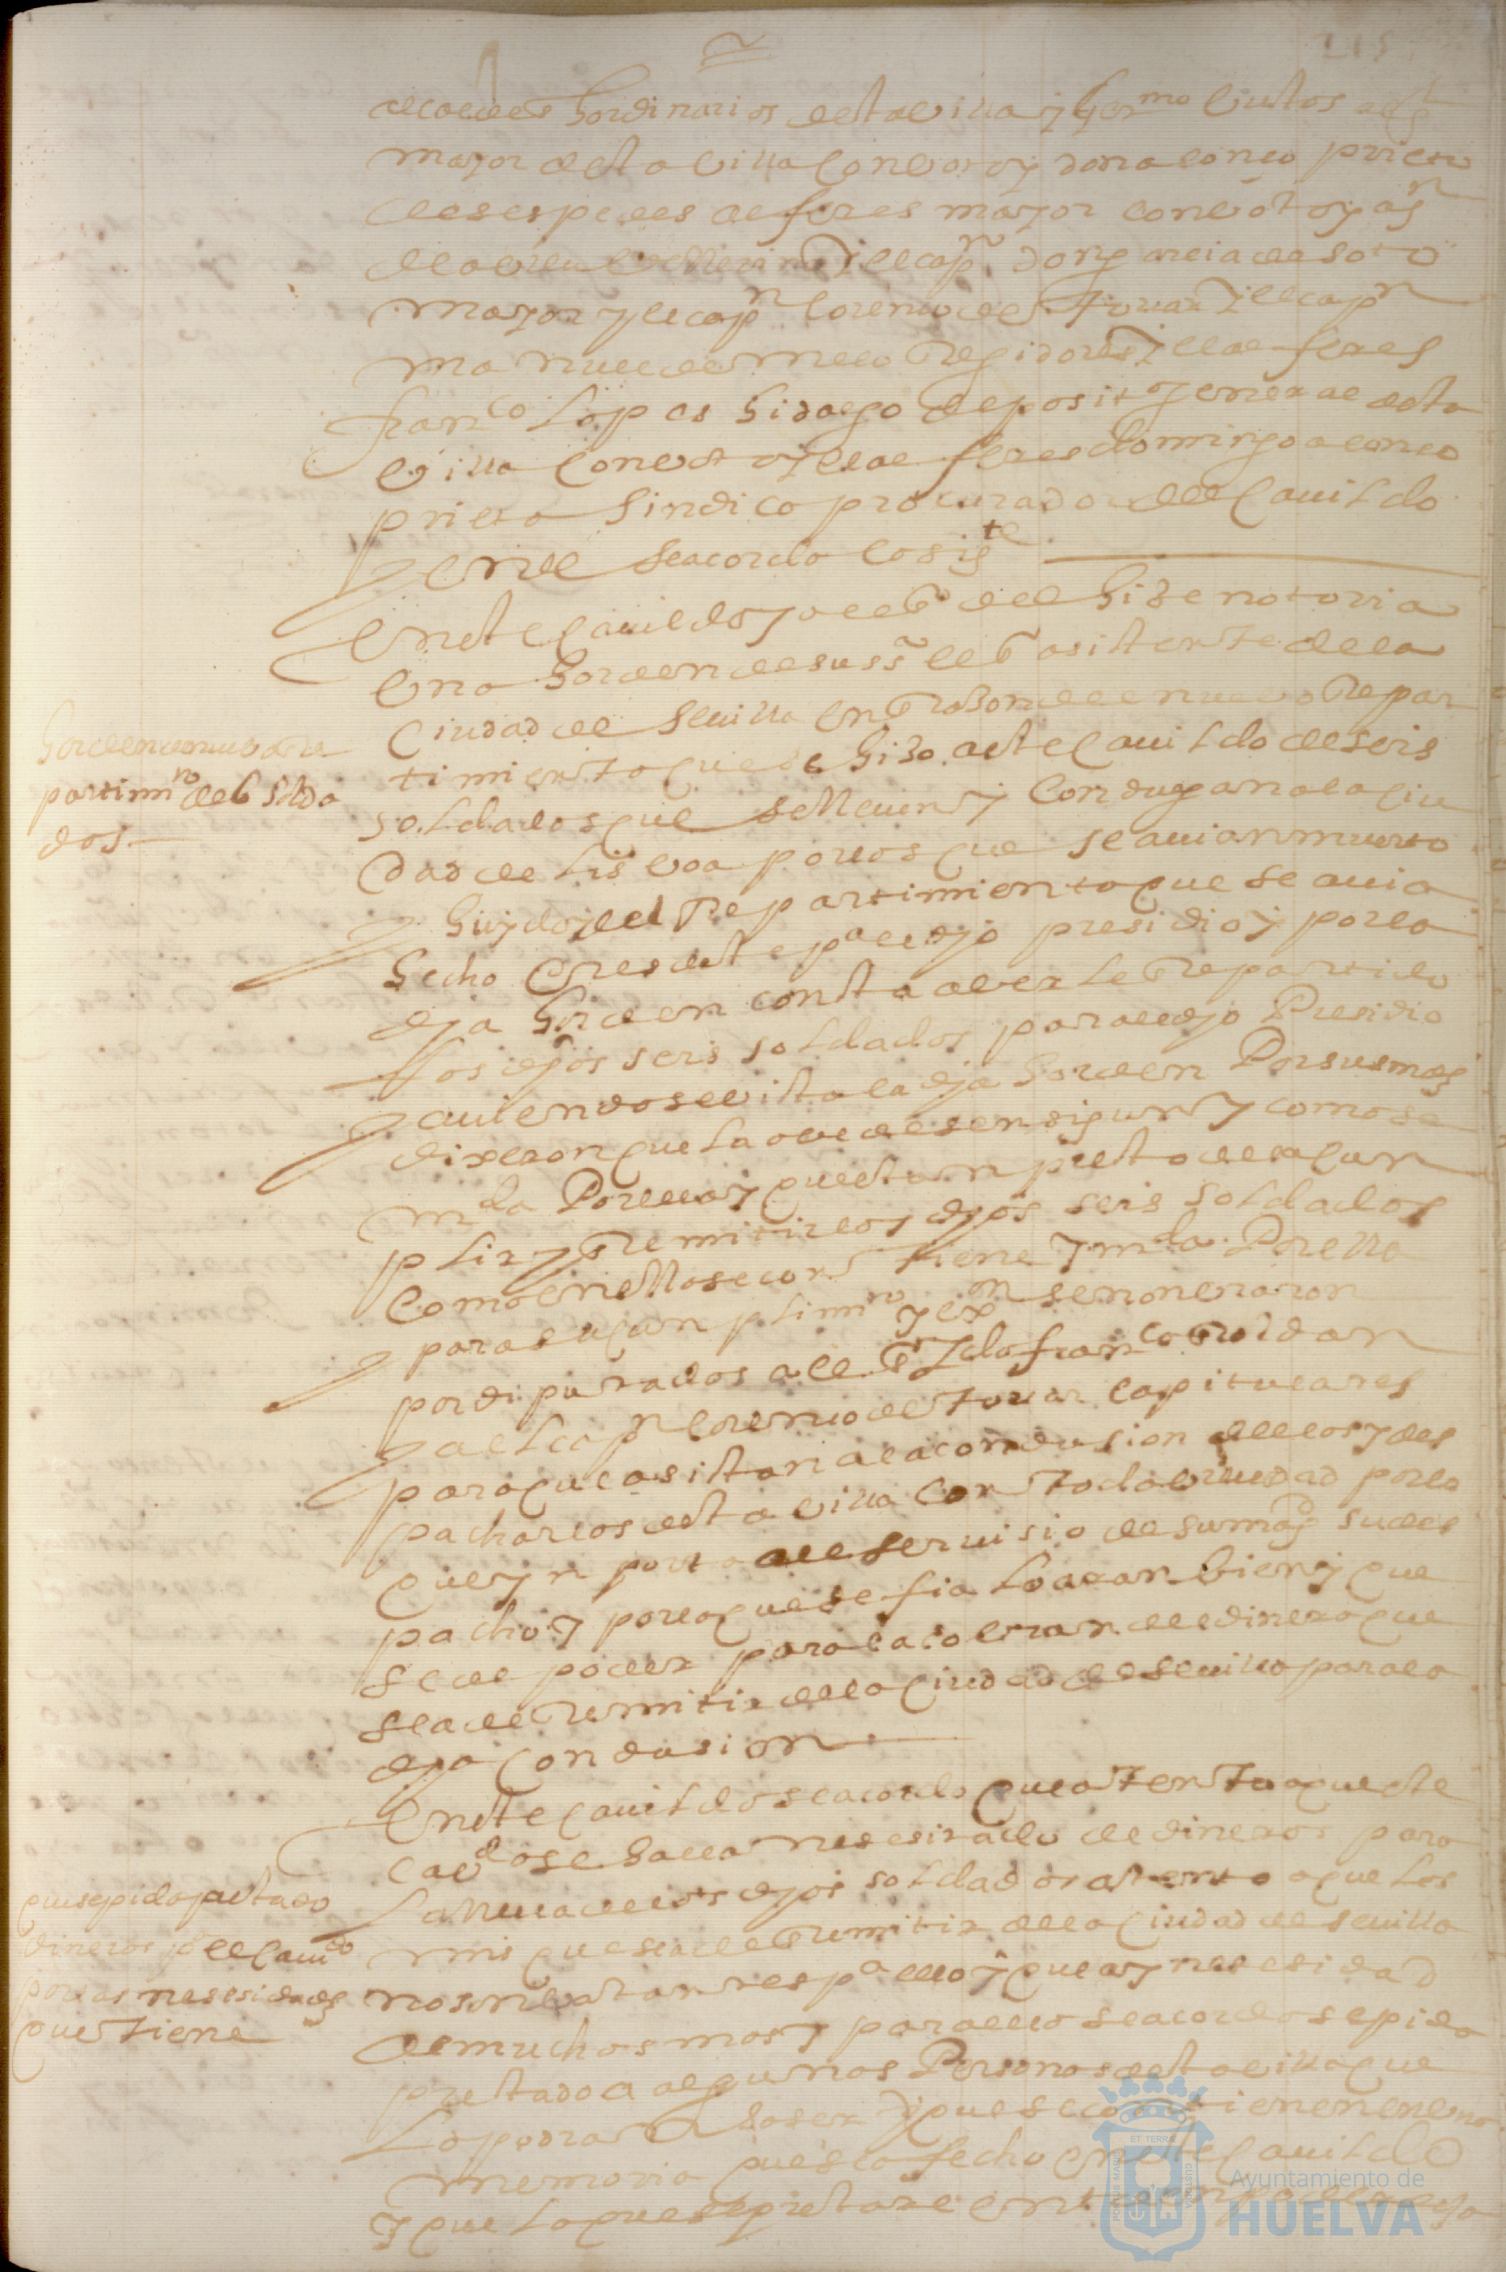 215
alcaldes hordinarios desta villa y Germo bultos alg
mayor desta villa con voto y don alonso prieto
de sespedes alferes mayor con voto y aj
el capn don garcia de soto
mayor y el capn lorenso de touar y el capn
manuel de melo Regidores y el alferes
franco Lopes hidalgo depositro jeneral desta
villa con voto y el alferes domingo alonso
prieto sindico procurador del cauildo
y en el se acordo lo sigte
En este cauildo yo el essno del hize notoria
vna horden de su ssa el sr asistente de la
ciudad de seuilla en Rason del nueuo Repar
timiento que se hizo a este cauildo de seis
soldados que se lleuen y condugan a la ciu
dad de lisvoa por los que se auian muerto
y huydo del Repartimiento que se auia
hecho antes deste pa el dho presidio y por la
dha horden consta averle Repartido
los dhos seis soldados para el dho Presidio
y auiendose vista la dha horden Por sus mds
dixeron que la obedesen sigun y como se
mda Por ella y questan presto de la cun
plir y Remitir los dhos seis soldados
como en ella se contiene y mda Por ella
para su cunplimno y exn se nonbraron
por diputados al sr Ldo franco Roldan
y al capn lorenso de touar capitulares
para que asistan a la condusion dellos y des
pacharlos desta villa con toda breuedad por lo
que ynporta al seruisio de su magd su des
pacho y por lo que se fia lo aran bien y que
se de poder para la cobransa del dinero que
se a de Remitir de la ciudad de seuilla para la
dha condusion
En este cauildo se acordo que atento a que este
cavdo se halla nesesitado de dineros para
la lleua de los dhos soldados atento a que los
mis que se a de Remitir de la ciudad de seuilla
no son bastantes pa ello y que ay nesesidad
de muchos mas y para ello se acordo se pida
prestado a algunas Personas desta villa que
lo podran haser y que se contienen en vna
memoria questa fecho en este cauildo
y que lo que se prestare
horden de nueuo Re
partimno de 6 solda
dos
que se pida prestado
dineros pa el cauido
por las nesesidades
que tiene
PORTUS MARIS ET TERRAE CUSTODIA
Ayuntamiento de
HUELVA